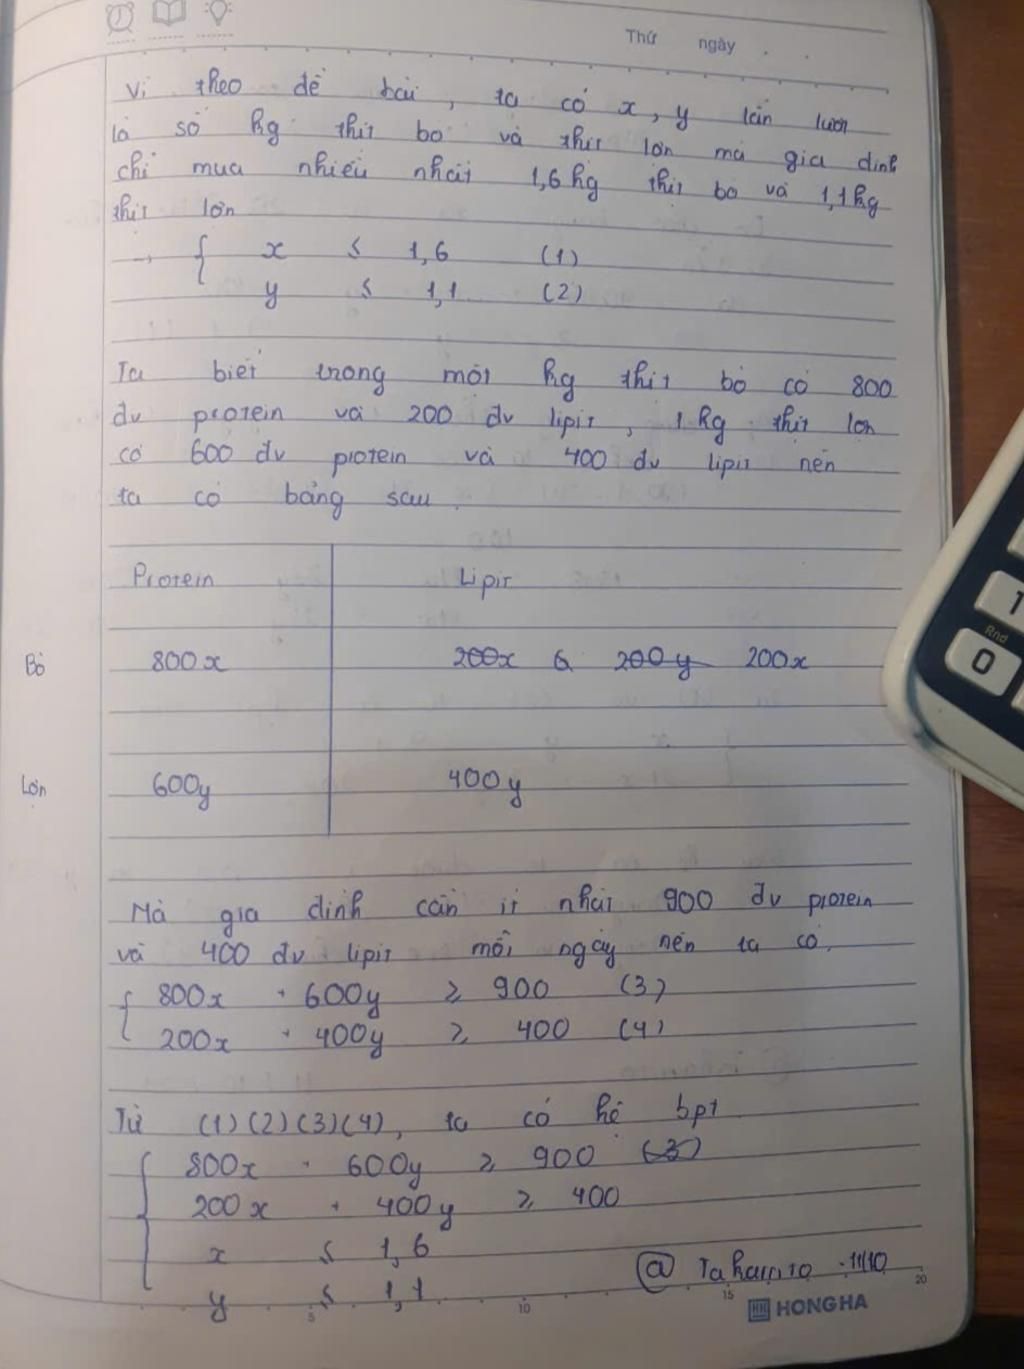 Thứ ngày
Vì theo đề bài, ta có x, y lần lượt
là số kg thịt bò và thịt lợn mà gia đình
chỉ mua nhiều nhất 1,6 kg thịt bò và 1,1 kg
thịt lợn
→ { x ≤ 1,6 (1)
y ≤ 1,1 (2)
Ta biết trong một kg thịt bò có 800
đv protein và 200 đv lipit, 1 kg thịt lợn
có 600 đv protein và 400 đv lipit nên
ta có bảng sau.
Protein Lipit
Bò 800x 200x & 200y 200x
Lợn 600y 400y
Mà gia đình cần ít nhất 900 đv protein
và 400 đv lipit mỗi ngày nên ta có.
{ 800x + 600y ≥ 900 (3)
200x + 400y ≥ 400 (4)
Từ (1)(2)(3)(4), ta có hệ bpt
{ 800x + 600y ≥ 900 (3)
200x + 400y ≥ 400
x ≤ 1,6
y ≤ 1,1
@ Takamto - 11/10
5 10 15 20
HH HONG HA
1
Rnd
0